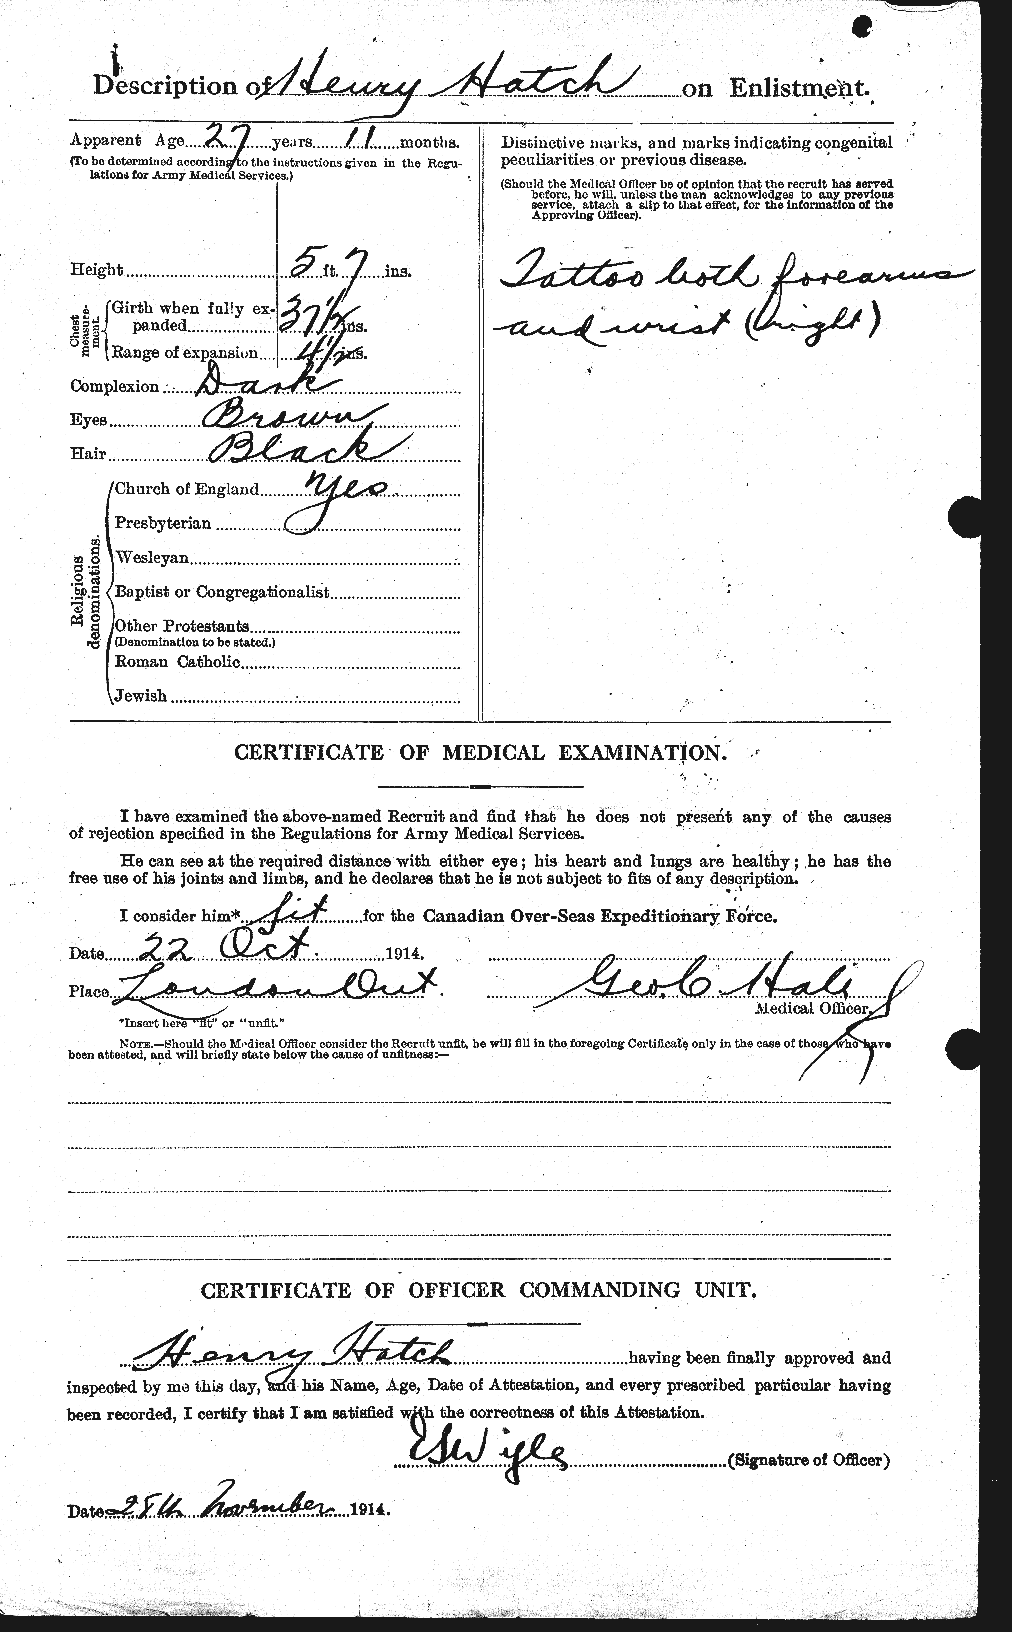 Description of Henry Hatch on Enlistment.
Apparent Age 27 years 11 months.
(To be determined according to the instructions given in the Regu-
lations for Army Medical Services.)
Height 5 ft. 7 ins.
Chest measure-ment.
Girth when fully ex-
panded 37 1/2 ins.
Range of expansion 4 1/2 ins.
Complexion Dark
Eyes Brown
Hair Black
Religious denominations.
Church of England Yes
Presbyterian
Wesleyan
Baptist or Congregationalist
Other Protestants
(Denomination to be stated.)
Roman Catholic
Jewish
Distinctive marks, and marks indicating congenital
peculiarities or previous disease.
(Should the Medical Officer be of opinion that the recruit has served
before, he will, unless the man acknowledges to any previous
service, attach a slip to that effect, for the information of the
Approving Officer).
Tattoo both forearms
and wrist (right)
CERTIFICATE OF MEDICAL EXAMINATION.
I have examined the above-named Recruit and find that he does not present any of the causes
of rejection specified in the Regulations for Army Medical Services.
He can see at the required distance with either eye; his heart and lungs are healthy; he has the
free use of his joints and limbs, and he declares that he is not subject to fits of any description.
I consider him* fit for the Canadian Over-Seas Expeditionary Force.
Date 22 Oct. 1914.
Place London Ont. Geo. C Hale
Medical Officer.
*Insert here "fit" or "unfit."
NOTE.—Should the Medical Officer consider the Recruit unfit, he will fill in the foregoing Certificate only in the case of those who have
been attested, and will briefly state below the cause of unfitness:—
CERTIFICATE OF OFFICER COMMANDING UNIT.
Henry Hatch having been finally approved and
inspected by me this day, and his Name, Age, Date of Attestation, and every prescribed particular having
been recorded, I certify that I am satisfied with the correctness of this Attestation.
ESWigle (Signature of Officer)
Date 28th November 1914.